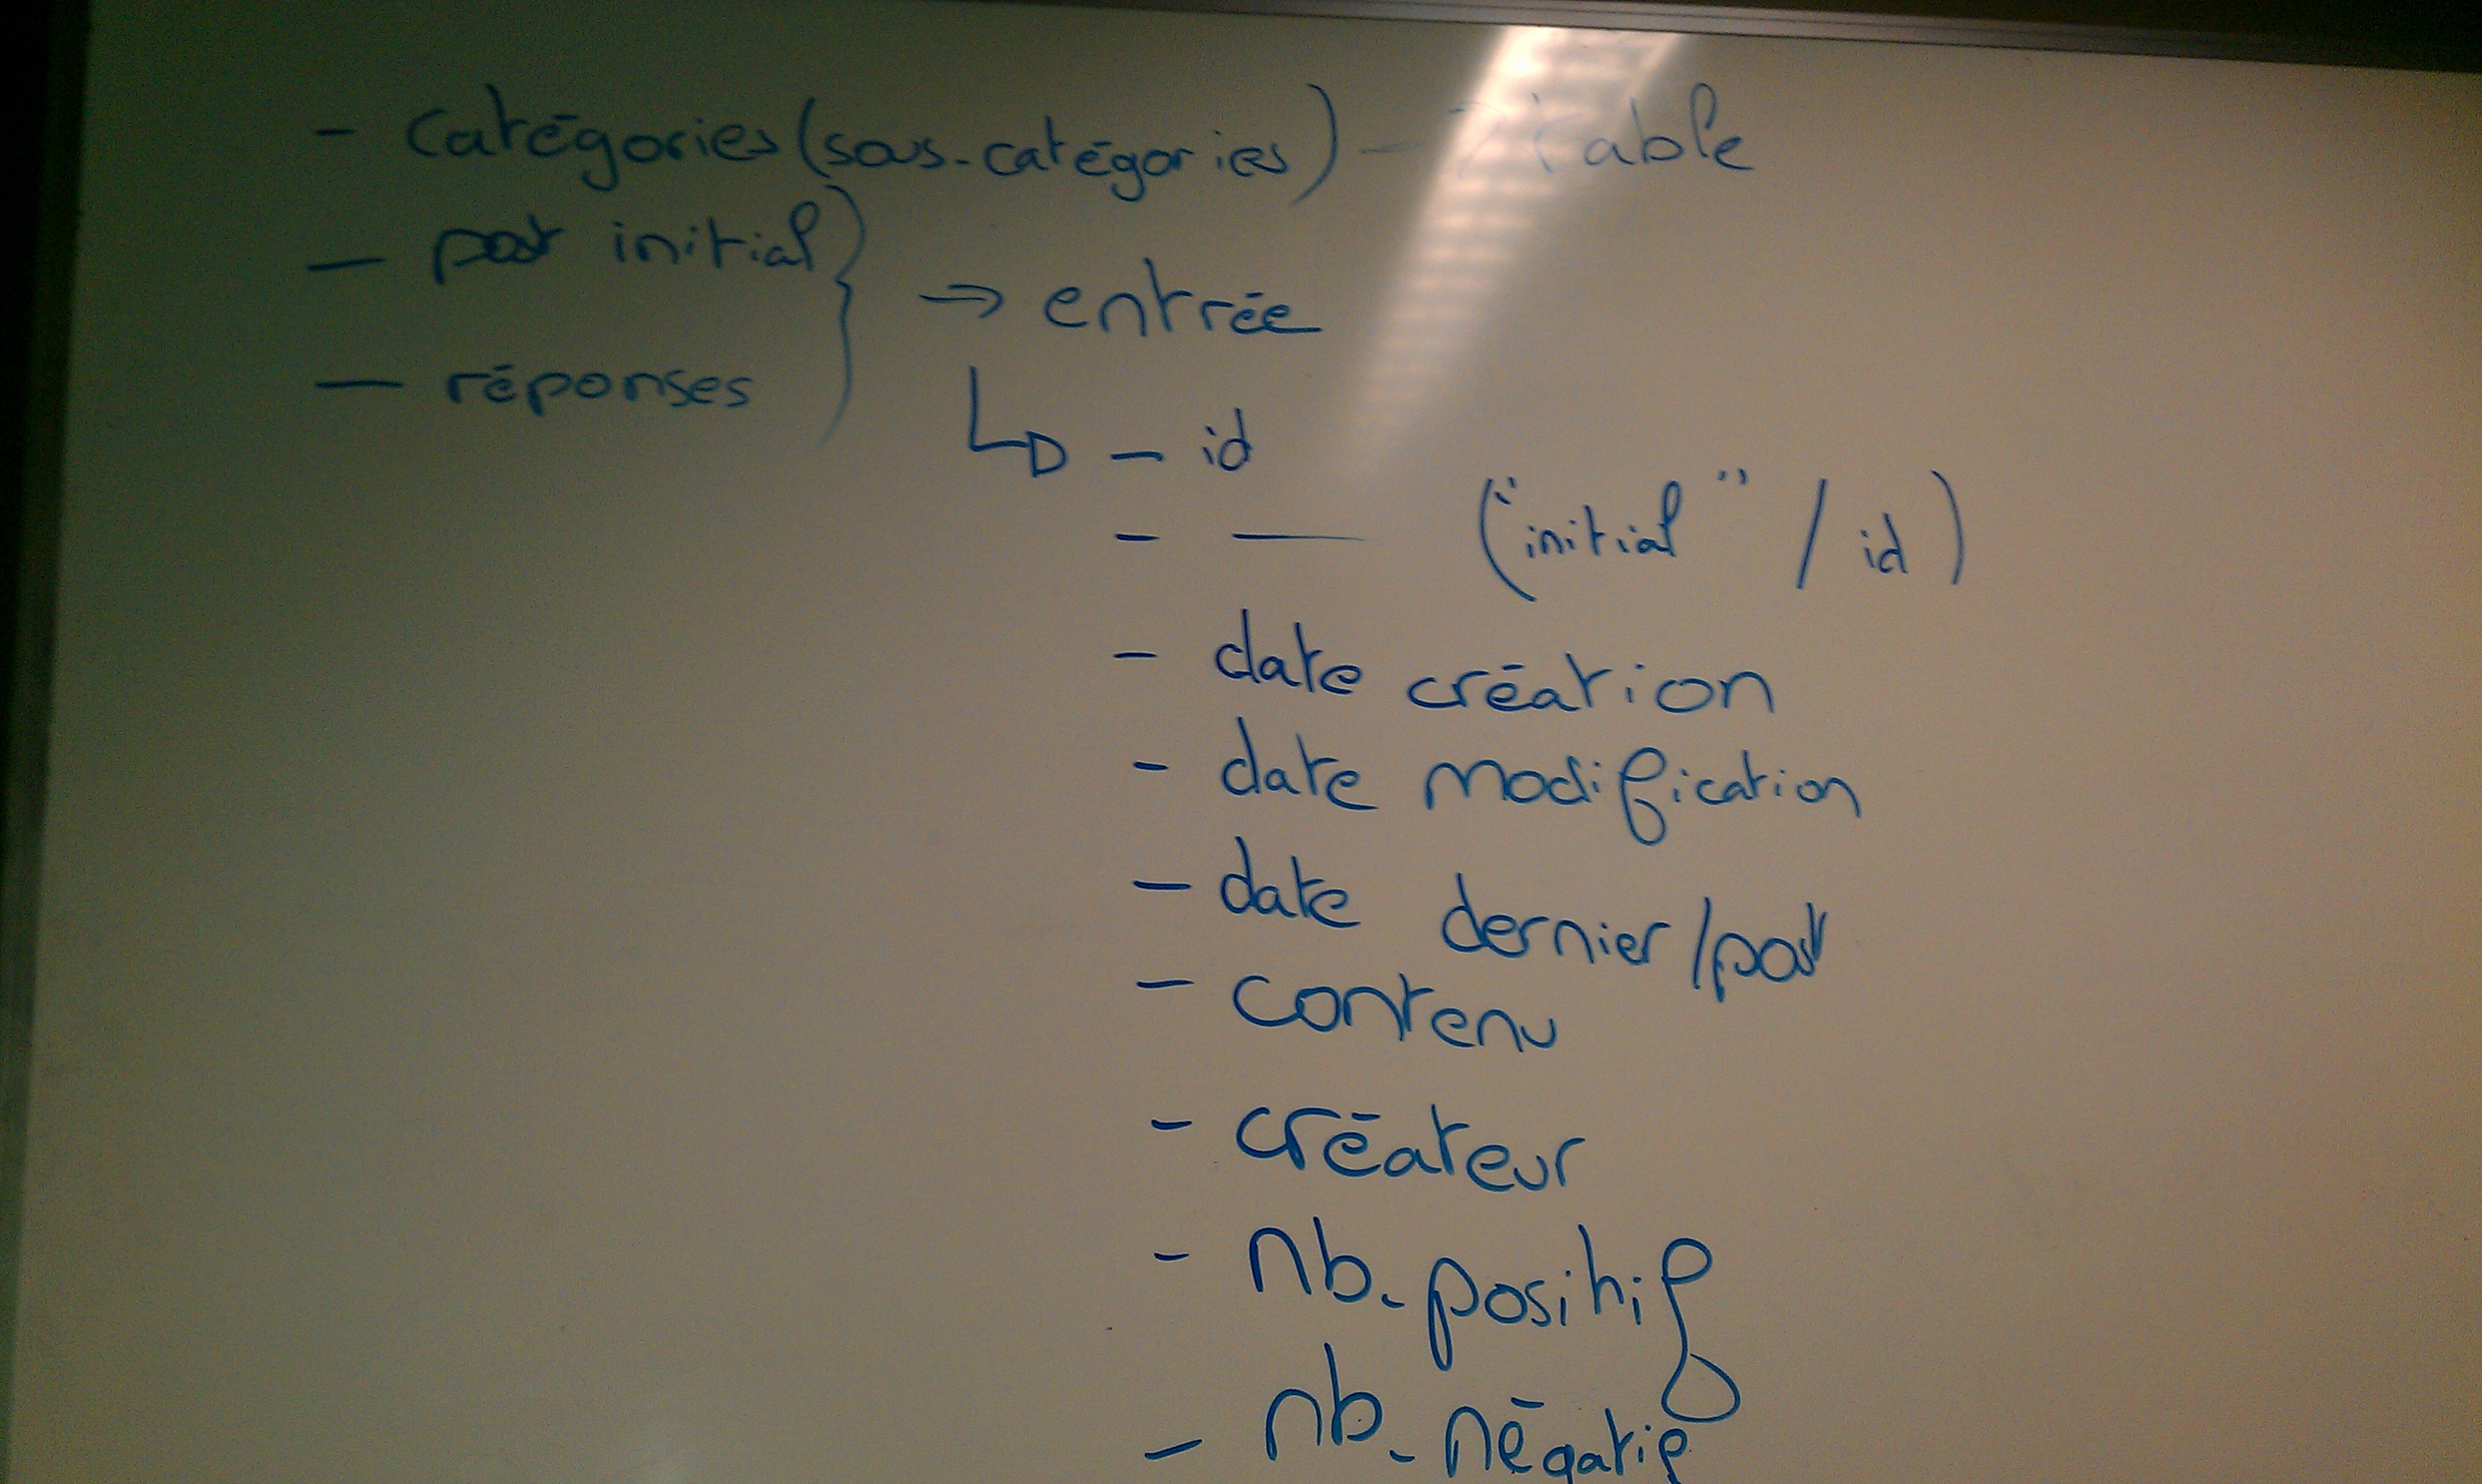 - catégories (sous-catégories) -> table
- post initial
→ entrée
- réponses
- id
- — ("initial" / id)
- date création
- date modification
- date dernier/post
- contenu
- créateur
- nb. positif
- nb. négatif